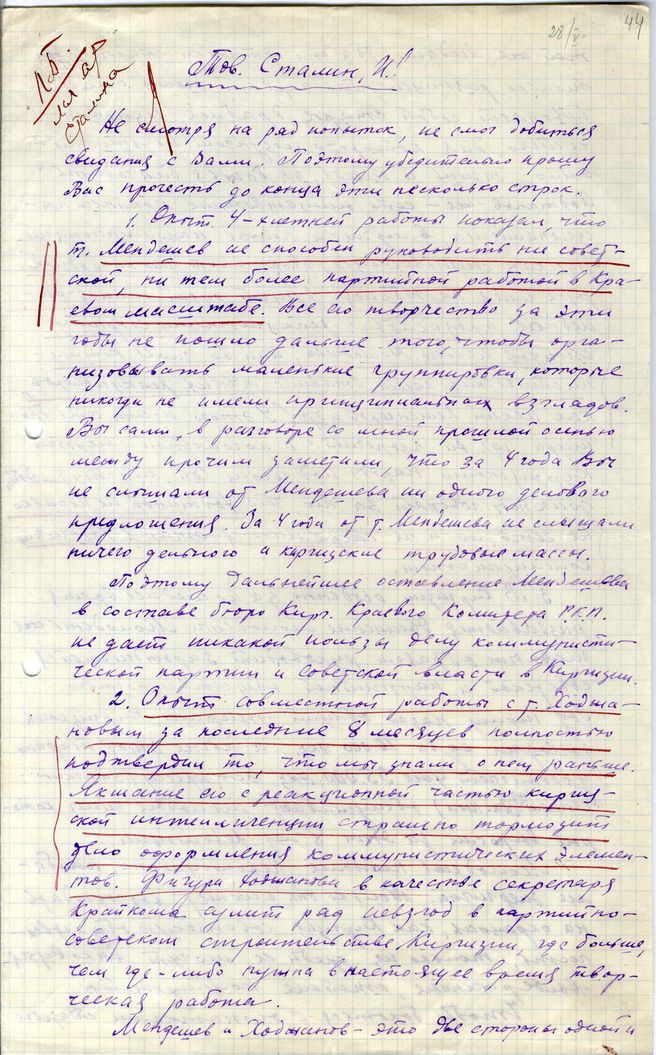 28/V.
44
П.Б.
мой ар
Сталина
Тов. Сталин, И.!
Не смотря на ряд попыток, не смог добиться
свидания с Вами. Поэтому убедительно прошу
Вас прочесть до конца эти несколько строк.
1. Опыт 4-хлетней работы показал, что
т. Мендешев не способен руководить ни совет-
ской, ни тем более партийной работой в Кра-
евом масштабе. Все его творчество за эти
годы не пошло дальше того, чтобы орга-
низовывать маленькие группировки, которые
никогда не имели принципиальных взглядов.
Вы сами, в разговоре со мной прошлой осенью
между прочим заметили, что за 4 года Вы
не слышали от Мендешева ни одного делового
предложения. За 4 года от т. Мендешева не слышали
ничего дельного и киргизские трудовые массы.
Поэтому дальнейшее оставление Мендешева
в составе бюро Кир. Краевого Комитета Р.К.П.
не дает никакой пользы делу коммунисти-
ческой партии и советской власти в Киргизии.
2. Опыт совместной работы с т. Ходжа-
новым за последние 8 месяцев полностью
подтвердил то, что мы знали о нем раньше.
Якшание его с реакционной частью киргиз-
ской интеллигенции страшно тормозит
дело оформления коммунистических элемен-
тов. Фигура Ходжанова в качестве секретаря
Крайкома сулит ряд невзгод в партийно-
советском строительстве Киргизии, где больше,
чем где-либо нужна в настоящее время твор-
ческая работа.
Мендешев и Ходжанов - это две стороны одной и